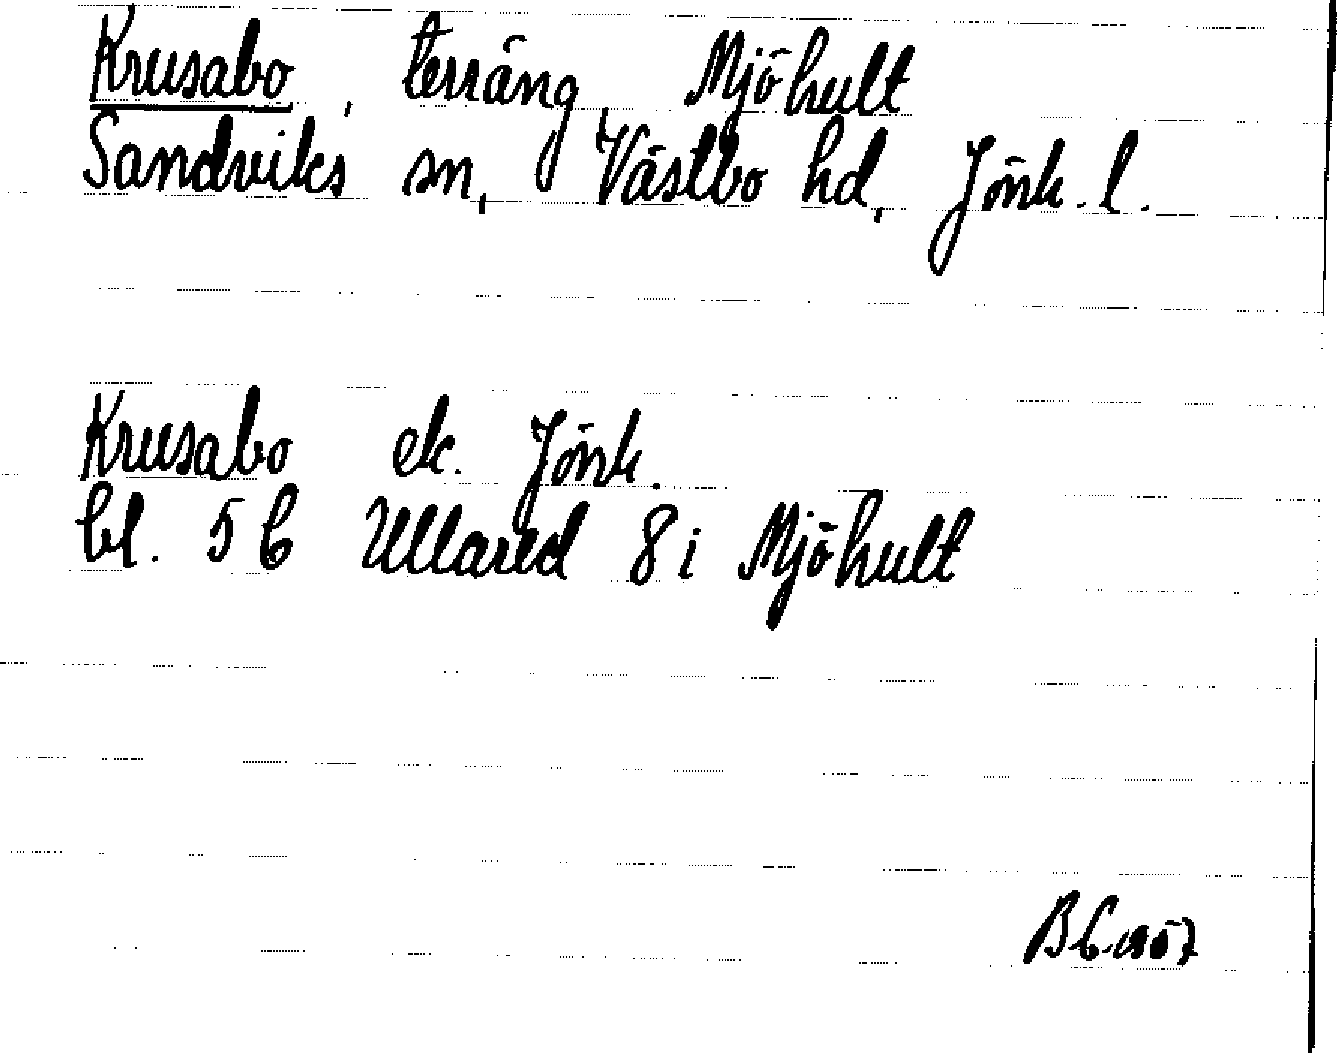 Krusabo, terräng Mjöhult
Sandviks sn, Västbo hd, Jönk. l.
Krusabo ek. Jönk.
bl. 5 C Ullared 8 i Mjöhult